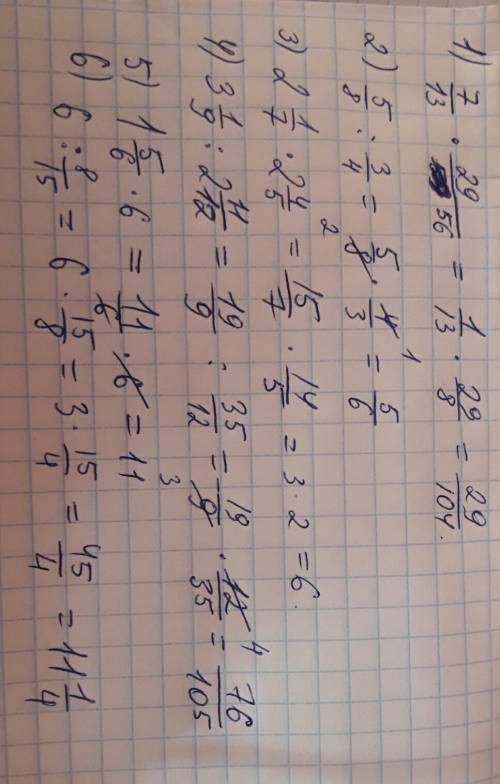 1) 7/13 · 29/56 = 1/13 · 29/8 = 29/104.
2) 5/8 : 3/4 = 5/8 2 · 4/3 1 = 5/6
3) 2 1/7 · 2 4/5 = 15/7 · 14/5 = 3 · 2 = 6.
4) 3 1/9 : 2 11/12 = 19/9 : 35/12 = 19/9 3 · 12/35 4 = 76/105
5) 1 5/6 · 6 = 11/6 · 6 = 11
6) 6 : 8/15 = 6 · 15/8 = 3 · 15/4 = 45/4 = 11 1/4